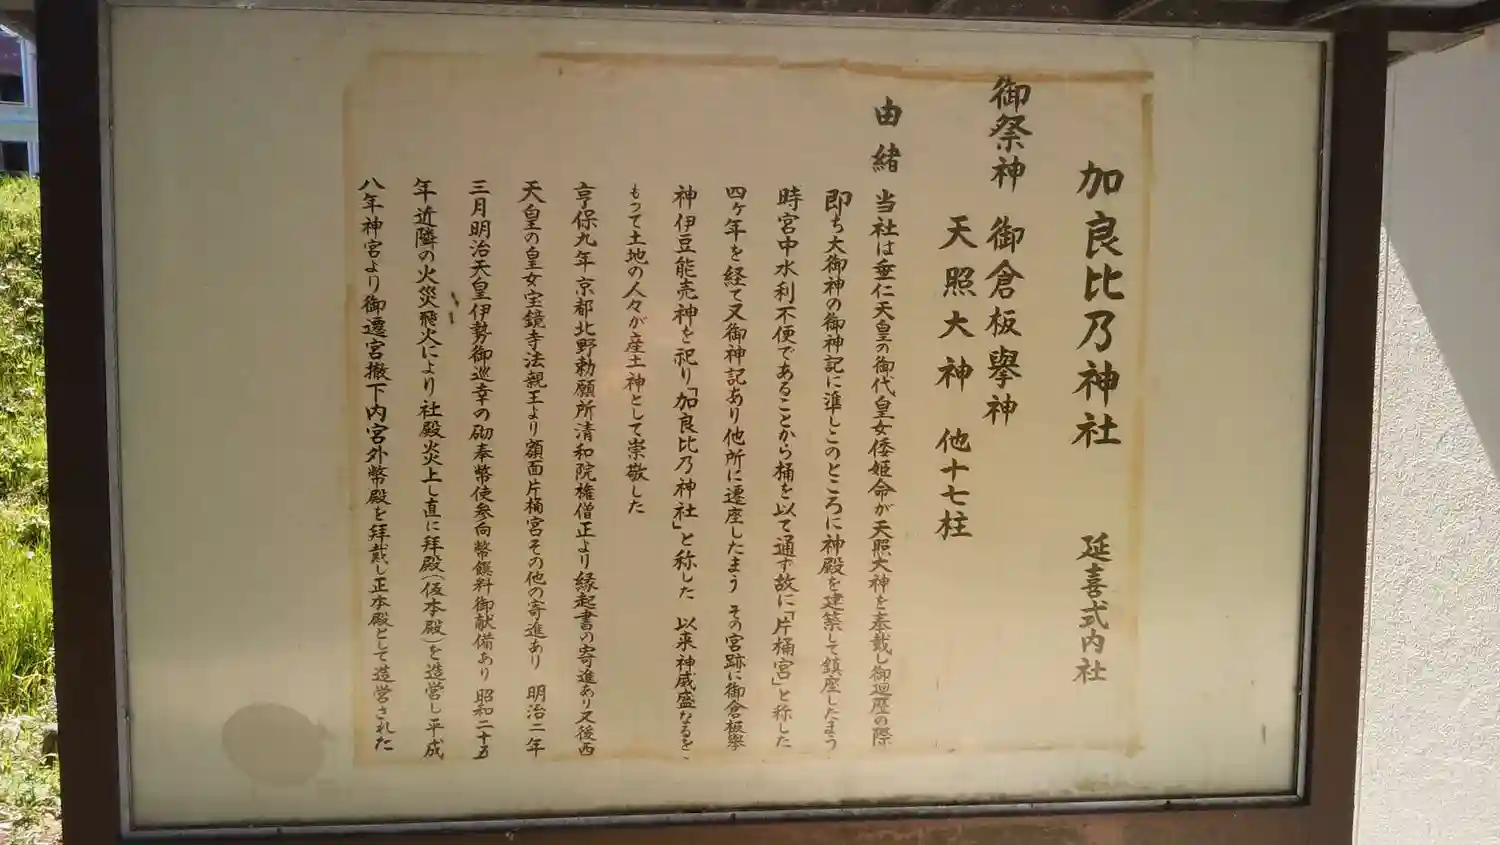 加良比乃神社 延喜式内社
御祭神 御倉板擧神
天照大神 他十七柱
由緒 当社は垂仁天皇の御代皇女倭姫命が天照大神を奉戴し御廻歴の際
即ち大御神の御神記に準しこのところに神殿を建築して鎮座したまう
時宮中水利不便であることから桶を以て通ず故に「片桶宮」と称した
四ヶ年を経て又御神記あり他所に遷座したまう その宮跡に御倉板擧
神伊豆能売神を祀り「加良比乃神社」と称した 以来神威盛なるを
もって土地の人々が産土神として崇敬した
亨保九年京都北野勅願所清和院権僧正より縁起書の寄進あり又後西
天皇の皇女宝鏡寺法親王より額面片桶宮その他の寄進あり 明治二年
三月明治天皇伊勢御巡幸の砌奉幣使参向幣饌料御献備あり 昭和二十五
年近隣の火災飛火により社殿炎上し直に拜殿(仮本殿)を造営し平成
八年神宮より御遷宮撤下内宮外幣殿を拜戴し正本殿として造営された